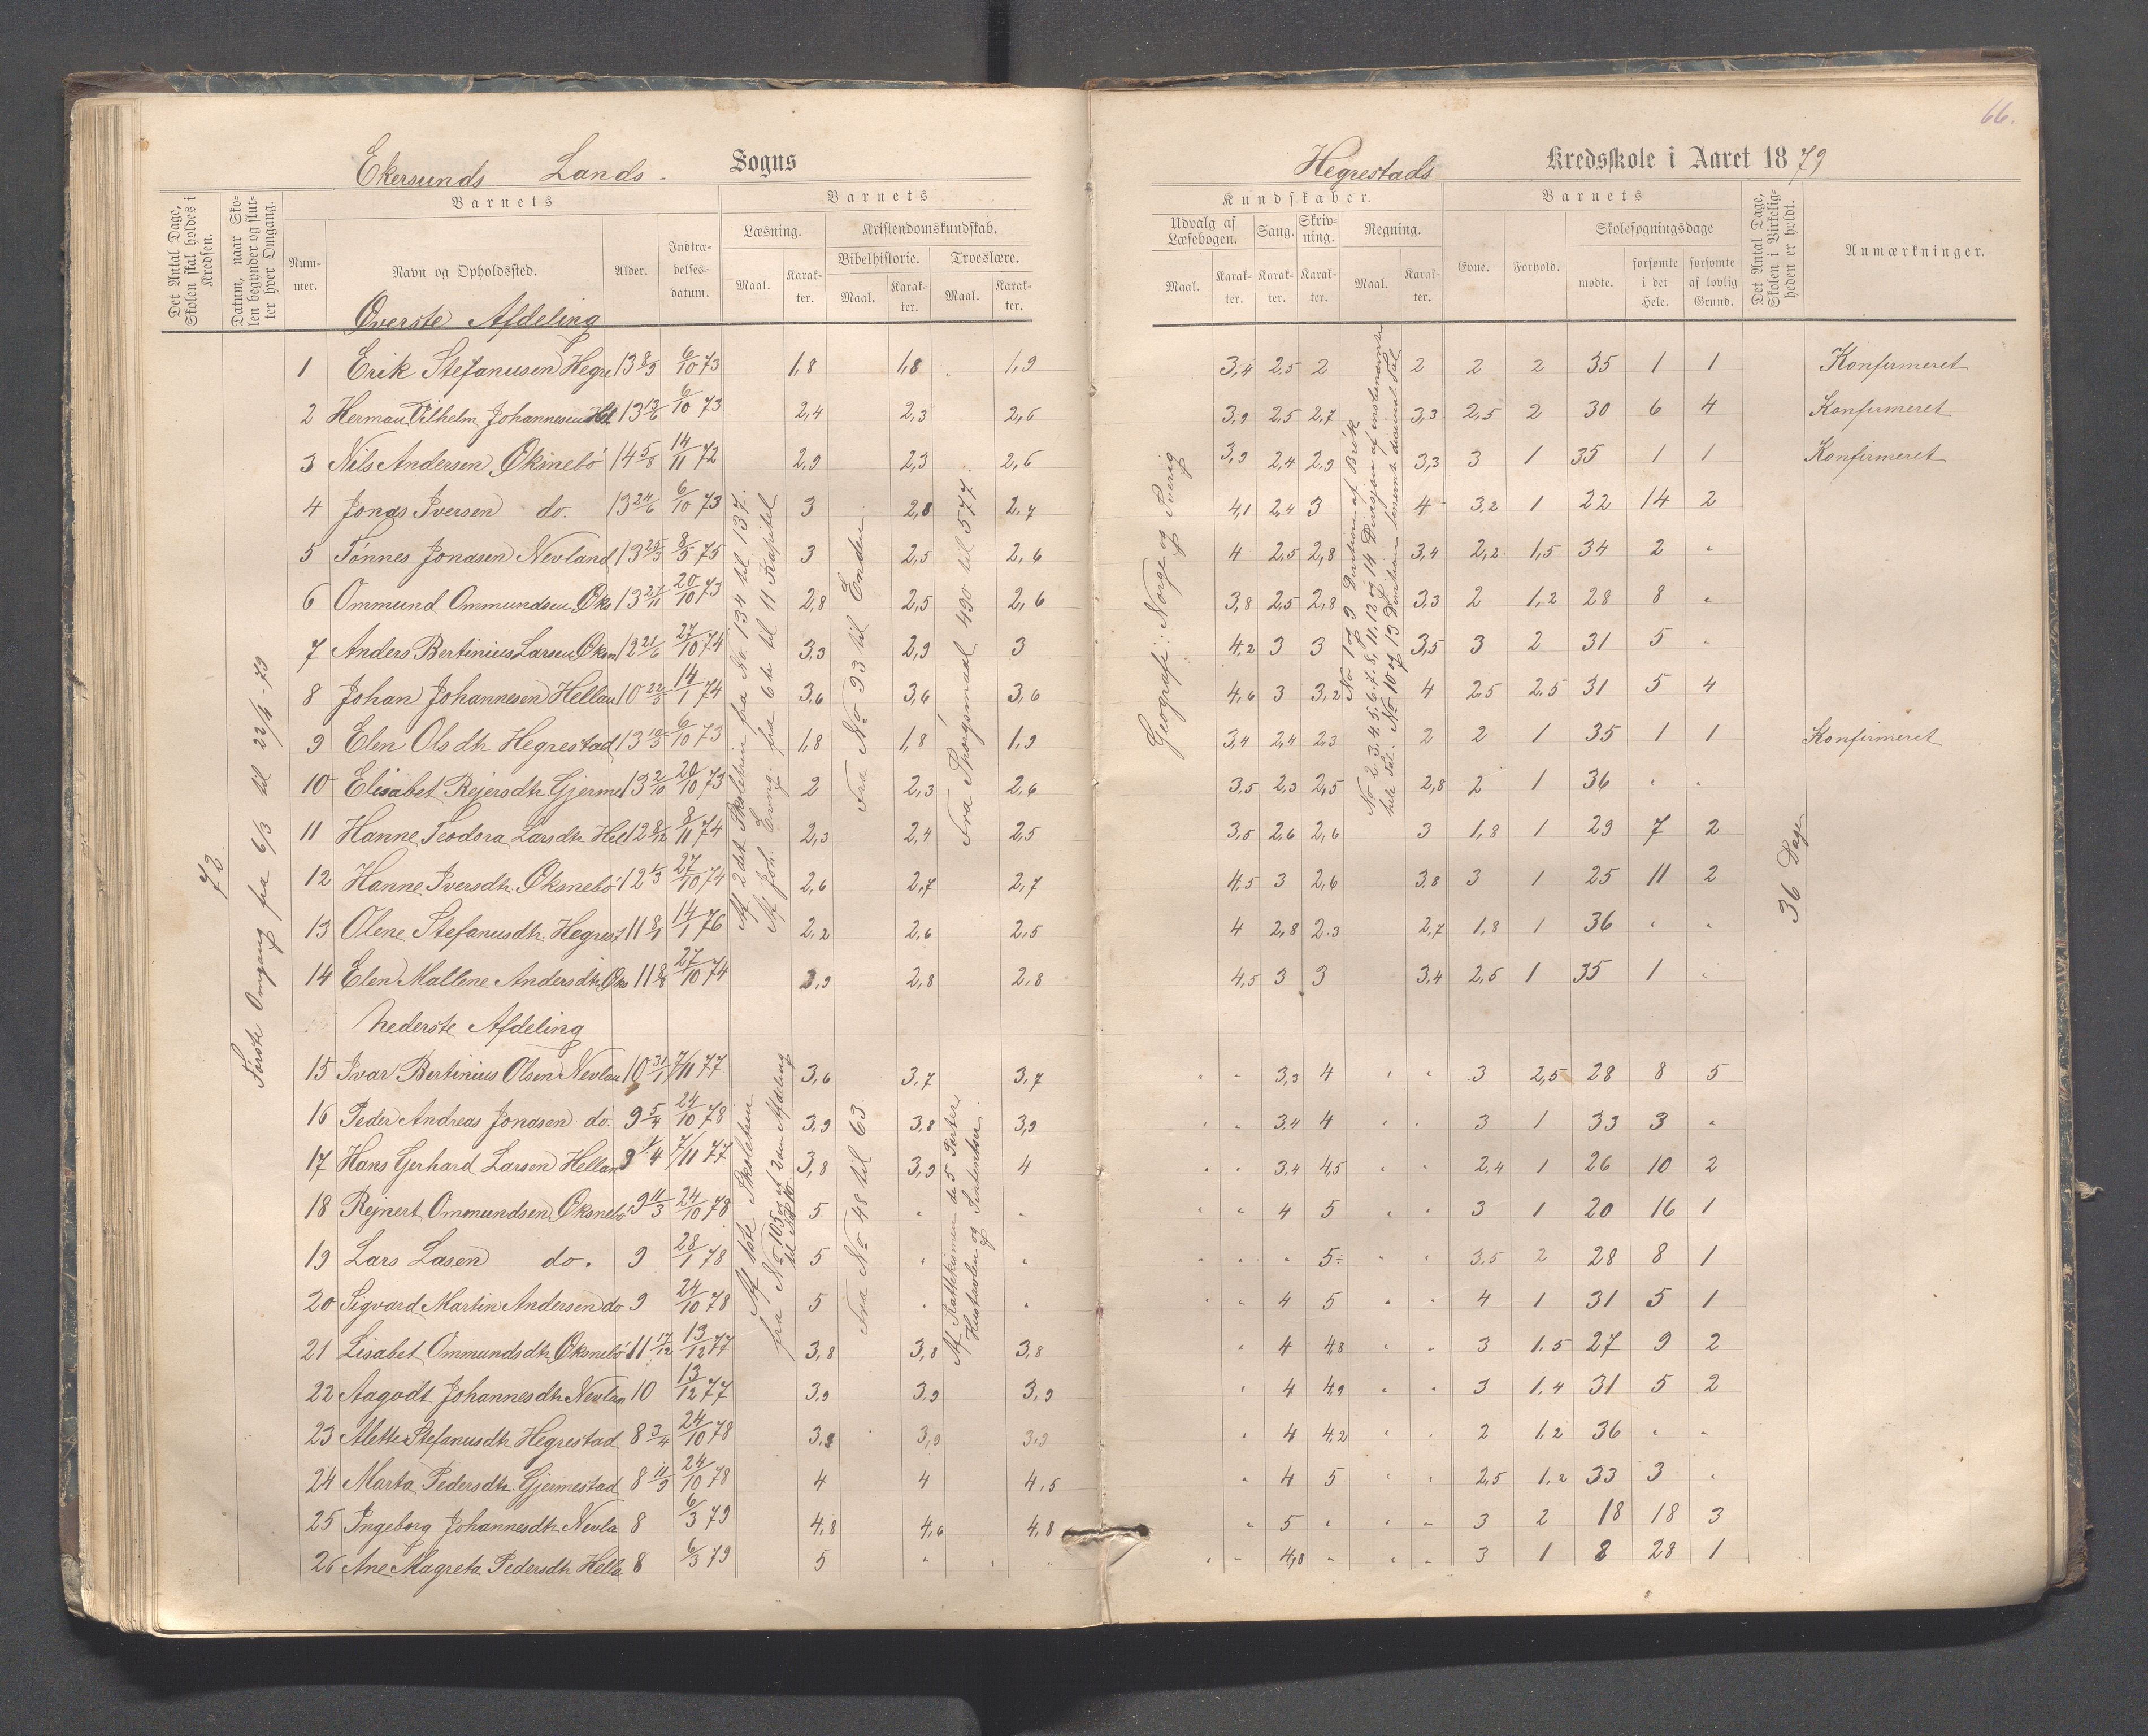 66.
Ekersunds Lands. Sogns
Hegrestads Kredsskole i Aaret 1879
Det Antal Dage, Skolen skal holdes i Kredsen.
Datum, naar Skolen begynder og slutter hver Omgang.
Barnets
Nummer.
Navn og Opholdssted.
Alder.
Indtrædelsesdatum.
Barnets
Læsning.
Maal.
Karakter.
Kristendomskundskab.
Bibelhistorie.
Maal.
Karakter.
Troeslære.
Maal.
Karakter.
Kundskaber.
Udvalg af Læsebogen.
Maal.
Karakter.
Sang.
Karakter.
Skrivning.
Karakter.
Regning.
Maal.
Karakter.
Barnets
Evne.
Forhold.
Skolesøgningsdage
mødte.
forsømte i det Hele.
forsømte af lovlig Grund.
Det Antal Dage, Skolen i Virkeligheden er holdt.
Anmærkninger.
Øverste Afdeling
1 Erik Stefanusen Hegre 13 8/9 6/10 73 1,8 1,8 1,9 3,4 2,5 2 2 2 2 35 1 1 Konfirmeret
2 Herman Vilhelm Johannesen Hel 13 13/6 6/10 73 2,4 2,3 2,6 3,9 2,5 2,7 3,3 2,5 2 30 6 4 Konfirmeret
3 Nils Andersen Øksnebö 14 5/8 14/11 72 2,9 2,3 2,6 3,9 2,4 2,9 3,3 3 1 35 1 1 Konfirmeret
4 Jonas Iversen do. 13 24/6 6/10 73 3 2,8 2,7 4,1 2,4 3 4 3,2 1 22 14 2
5 Tönnes Jonasen Nevland 13 25/3 8/5 75 3 2,5 2,6 4 2,5 2,8 3,4 2,2 1,5 34 2 "
6 Ommund Ommundsen Øks 13 27/11 20/10 73 2,8 2,5 2,6 3,8 2,5 2,8 3,3 2 1,2 28 8 "
7 Anders Bertinius Larsen Øksn 12 21/6 27/10 74 3,3 2,9 3 4,2 3 3 3,5 3 2 31 5 "
8 Johan Johannesen Hellan 10 22/5 14/1 74 3,6 3,6 3,6 4,6 3 3,2 4 2,5 2,5 31 5 4
9 Elen Olsdtr Hegrestad 13 19/3 6/10 73 1,8 1,8 1,9 3,4 2,4 2,3 2 2 1 35 1 1 Konfirmeret
10 Elisabet Rejersdtr Gjerme 13 2/10 20/10 73 2 2,3 2,6 3,5 2,3 2,5 2,8 2 1 36 " "
11 Hanne Teodora Larsdtr Hel 12 8/12 8/11 74 2,3 2,4 2,5 3,5 2,6 2,6 3 1,8 1 29 7 2
12 Hanne Iversdtr. Øksnebö 12 1/3 27/10 74 2,6 2,7 2,7 4,5 3 2,6 3,8 3 1 25 11 2
13 Olene Stefanusdtr. Hegrest 11 8/1 14/1 76 2,2 2,6 2,5 4 2,8 2,3 2,7 1,8 1 36 " "
14 Elen Mallene Andersdtr Øks 11 8/8 27/10 74 3,9 2,8 2,8 4,5 3 3 3,4 2,5 1 35 1 "
Nederste Afdeling
15 Ivar Bertinius Olsen Nevlan 10 31/1 7/11 77 3,6 3,7 3,7 " " 3,3 4 " " 3 2,5 28 8 5
16 Peder Andreas Jonasen do. 9 5/4 24/10 78 3,9 3,8 3,9 " " 3,4 4 3 1 33 3 "
17 Hans Gerhard Larsen Hellan 9 1/4 7/11 77 3,8 3,9 4 " " 3,4 4,5 " " 2,4 1 26 10 2
18 Rejnert Ommundsen Øksnebö 9 11/3 24/10 78 5 " " " " 4 5 " " 3 1 20 16 1
19 Lars Lasen do. 9 28/1 78 5 " " " " " 5÷ " " 3,5 2 28 8 1
20 Sigvard Martin Andersen do 9 24/10 78 5 " " " " 4 5 " " 4 1 31 5 1
21 Lisabet Ommundsdtr Øksnebö 11 17/12 13/12 77 3,8 3,8 3,8 " 4 4,8 " " 3 1,5 27 9 2
22 Aagodt Johannesdtr Nevlan 10 13/12 77 3,9 3,9 3,9 " 4 4,9 " " 3 1,4 31 5 2
23 Alette Stefanusdtr Hegrestad 8 3/4 24/10 78 3,9 3,9 3,9 " 4 4,2 " " 2 1,2 36 " "
24 Marta Pedersdtr. Gjermestad 8 11/9 24/10 78 4 4 4,5 " 4 5 " " 2,5 1,2 33 3 "
25 Ingeborg Johannesdtr Nevla 8 6/3 79 4,8 4,6 4,8 " 5 " " " 3 2 18 18 3
26 Ane Magreta Pedersdtr Hella 8 6/3 79 5 " " " " 4,8 " " " 3 1 8 28 1
72
Förste Omgang fra 6/3 til 22/4 - 79
Af 2det Skoletrin fra No 134 til 137.
Af Joh. Evang. fra 6te til 11 Kapitel
Fra No 93 til Enden
Fra Spörgsmaal 490 til 577
Geografi: Norge og Sverig
No 1 og 9 Divition af Brök
No 2. 3. 4. 5. 6. 7. 8, 11, 12 og 14 Divisjon af ensbenævnte hele Tal. No 10 og 13 Divition
36 Dage
Af 1ste Skoletrin fra No 105 og af 2den Afdeling til No 16.
Fra No 48 til 63.
Af Katekismen de 5 Parter Hustavlen og Skriftemaal.